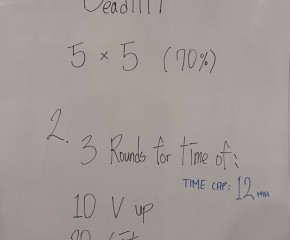 Deadlift
5 × 5 (70%)
2.
3 Rounds for time of:
TIME CAP: 12 MIN
10 V up